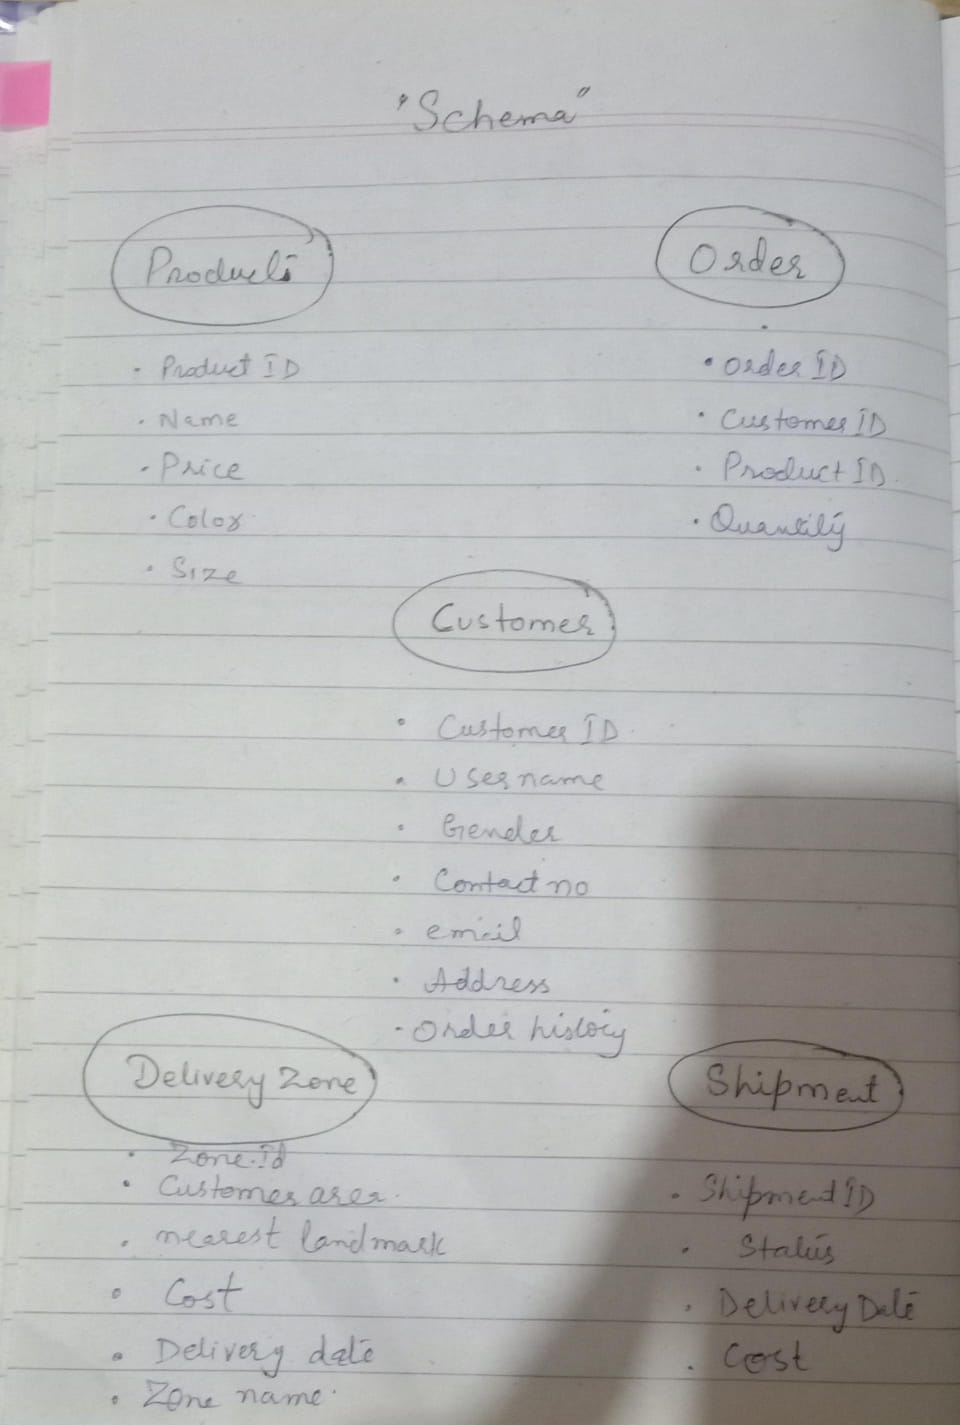 "Schema"
Products
Product ID
Name
Price
Color
Size
Order
Order ID
Customer ID
Product ID
Quantity
Customer
Customer ID
Username
Gender
Contact no
email
Address
Order history
Delivery Zone
Zone Id
Customer area
nearest landmark
Cost
Delivery date
Zone name
Shipment
Shipment ID
Status
Delivery Date
Cost